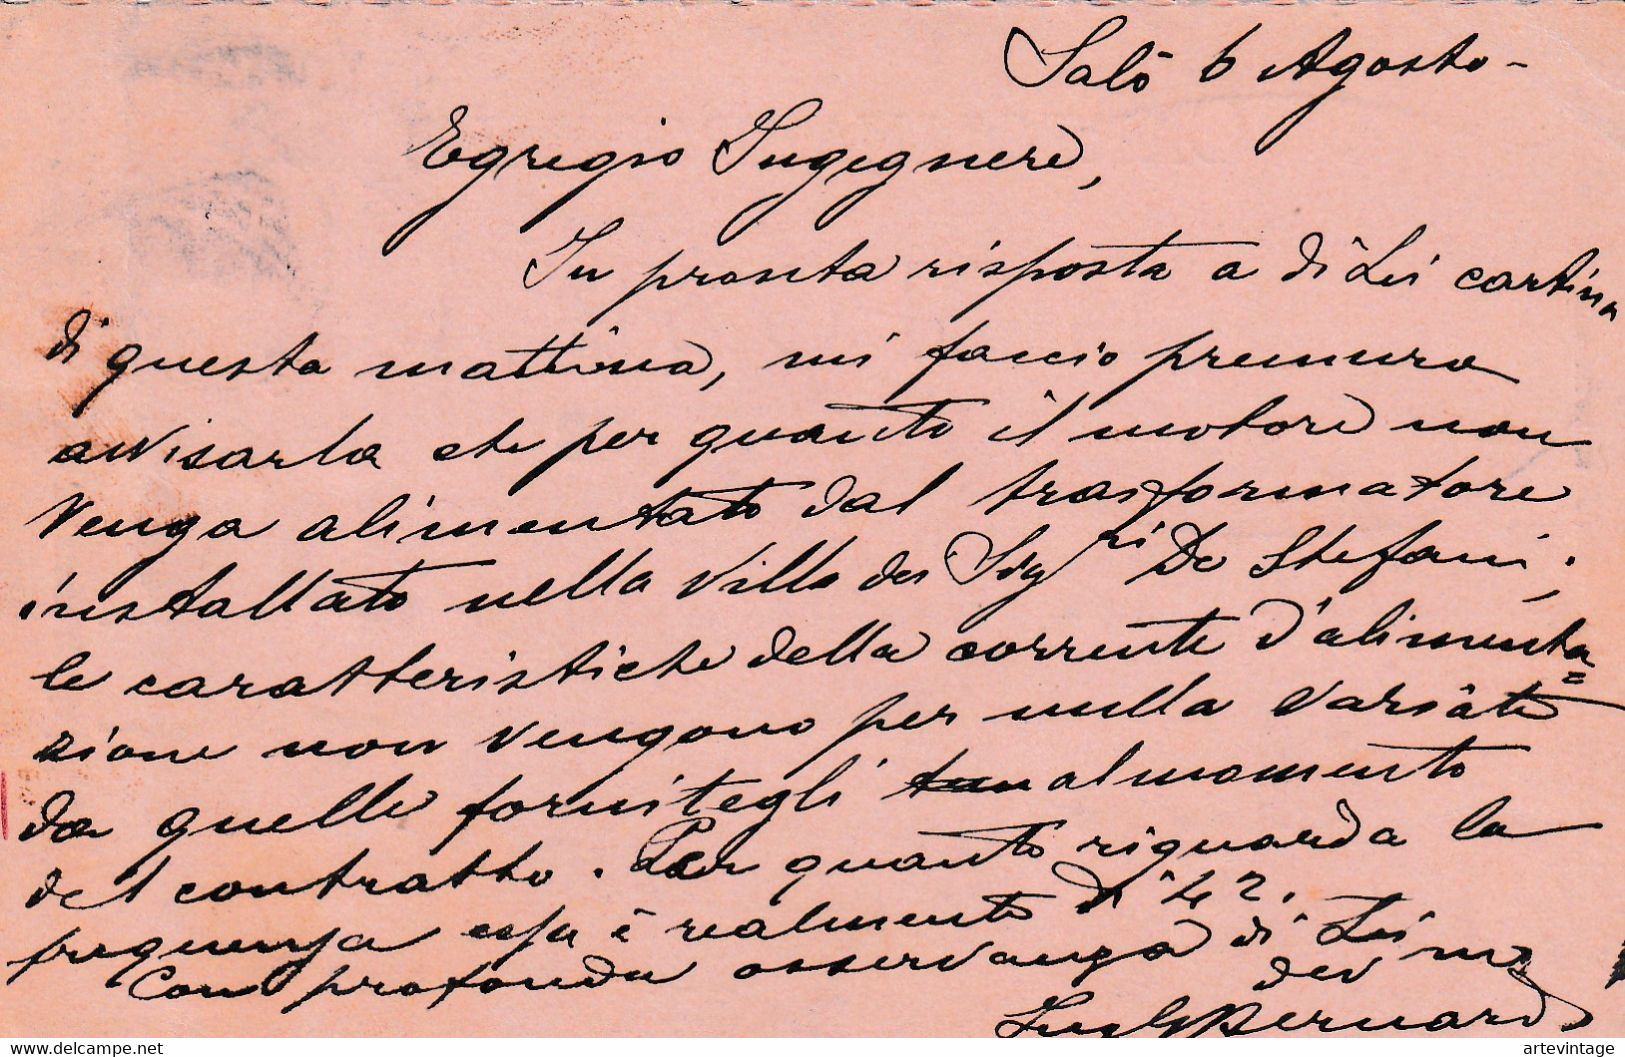 Salò 6 Agosto -
Egregio Ingegnere,
In pronta risposta a di Lei cartina
di questa mattina, mi faccio premura
avvisarla che per quanto il motore non
venga alimentato dal trasformatore
installato nella Villa dei Sigri De Stefani;
le caratteristiche della corrente d'alimenta=
zione non vengono per nulla variate
da quelle fornitegli al momento
del contratto. Per quanto riguarda la
frequenza essa è realmente di 42.
Con profonda osservanza di Lei
dev mo
Bernardi
artevintage
www.delcampe.net